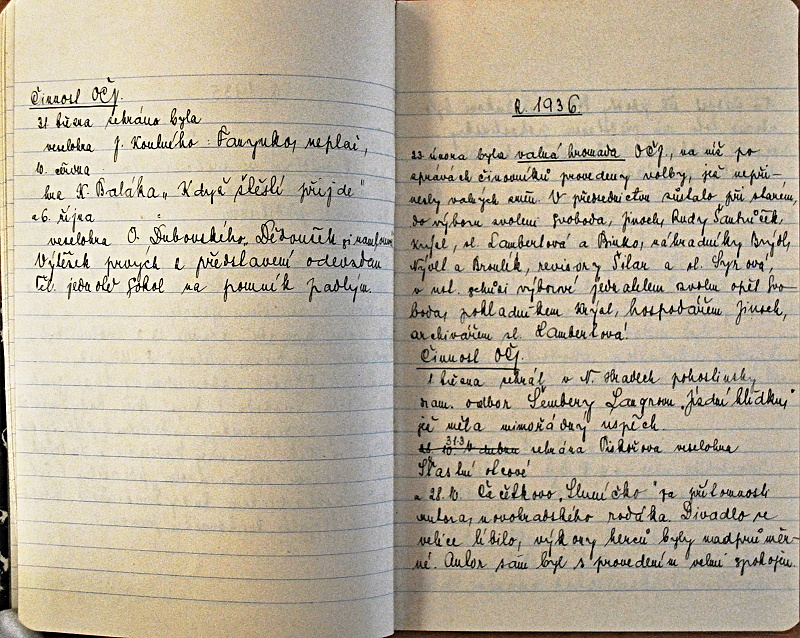 Činnost OČJ.
31 března sehráno byla
veselohra J. Koubného: Fanynko, neplač,
10. června
hra K. Baláka „Když štěstí přijde"
a 6. října
veselohra O. Dubovského „Dědoušek
Výtěžek prvých 2 představení odevzdán
těl. jednotě Sokol na pomník padlým.
R. 1936.
23 února byla valná hromada OČJ., na níž po
správách činovníků provedeny volby, jež nepři-
nesly valných změn. V předsednictvu zůstalo při starém,
do výboru zvoleni Svoboda, Jinoch, Rudy Šantrůček,
Krejč, sl. Lambertová a Binko, náhradníky Brýdl,
a Broulík, revisory Šilar a sl. Syrová,
v ust. schůzi výborové jednatelem zvolen opět Svo-
boda, pokladníkem Krejč, hospodářem Jinoch,
archivářem sl. Lambertová.
Činnost OČJ.
1 března sehrál v N. Hradech pohostinsky
dram. odbor Šembery Langrovu „Jízdní hlídku"
jež měla mimořádný úspěch.
31.3 dubna sehrána Piskořova veselohra
Šťastní otcové
a 28.10. Čačetkovo „Sluníčko" za přítomnosti
autora, novohradského rodáka. Divadlo se
velice líbilo, výkony herců byly nadprůměr-
né. Autor sám byl s provedením velmi spokojen.